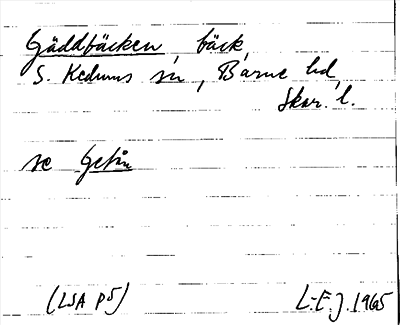 Gäddbäcken, bäck,
S. Kedums sn, Barne hd,
Skar. l.
se Getån
(LSA P5) L-E.J. 1965